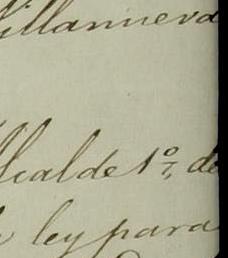 Villanueva
Alcalde 1º, de
ley para